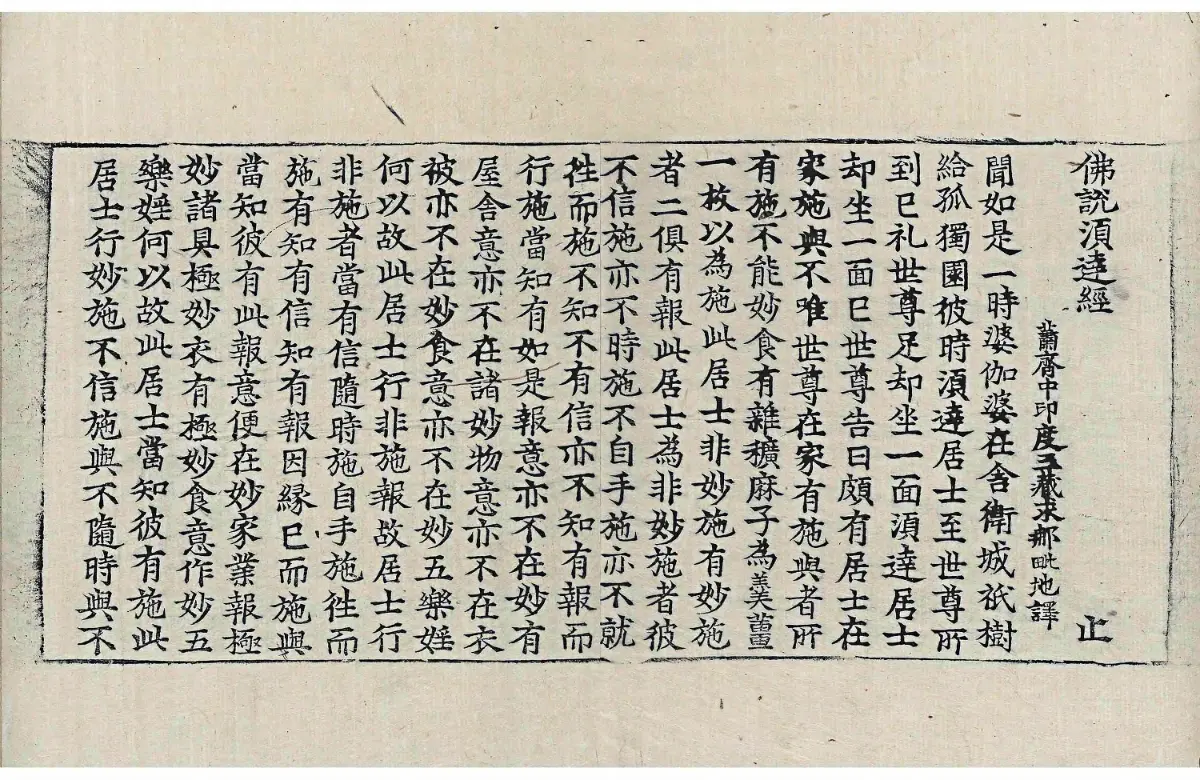 佛說湏逹經 止
蕭齊中印度三藏求那毗地譯
聞如是一時婆伽婆在舎衛城祇樹
給孤獨園彼時湏逹居士至世尊所
到已礼世尊足却坐一面湏逹居士
却坐一面已世尊告曰頗有居士在
家施與不唯世尊在家有施與者所
有施不能妙食有雜穬麻子為羙薑
一枚以為施此居士非妙施有妙施
者二俱有報此居士為非妙施者彼
不信施亦不時施不自手施亦不就
徃而施不知不有信亦不知有報而
行施當知有如是報意亦不在妙有
屋舎意亦不在諸妙物意亦不在衣
被亦不在妙食意亦不在妙五樂婬
何以故此居士行非施報故居士行
非施者當有信隨時施自手施徃而
施有知有信知有報因縁已而施與
當知彼有此報意便在妙家業報極
妙諸具極妙衣有極妙食意作妙五
樂婬何以故此居士當知彼有施此
居士行妙施不信施與不隨時與不